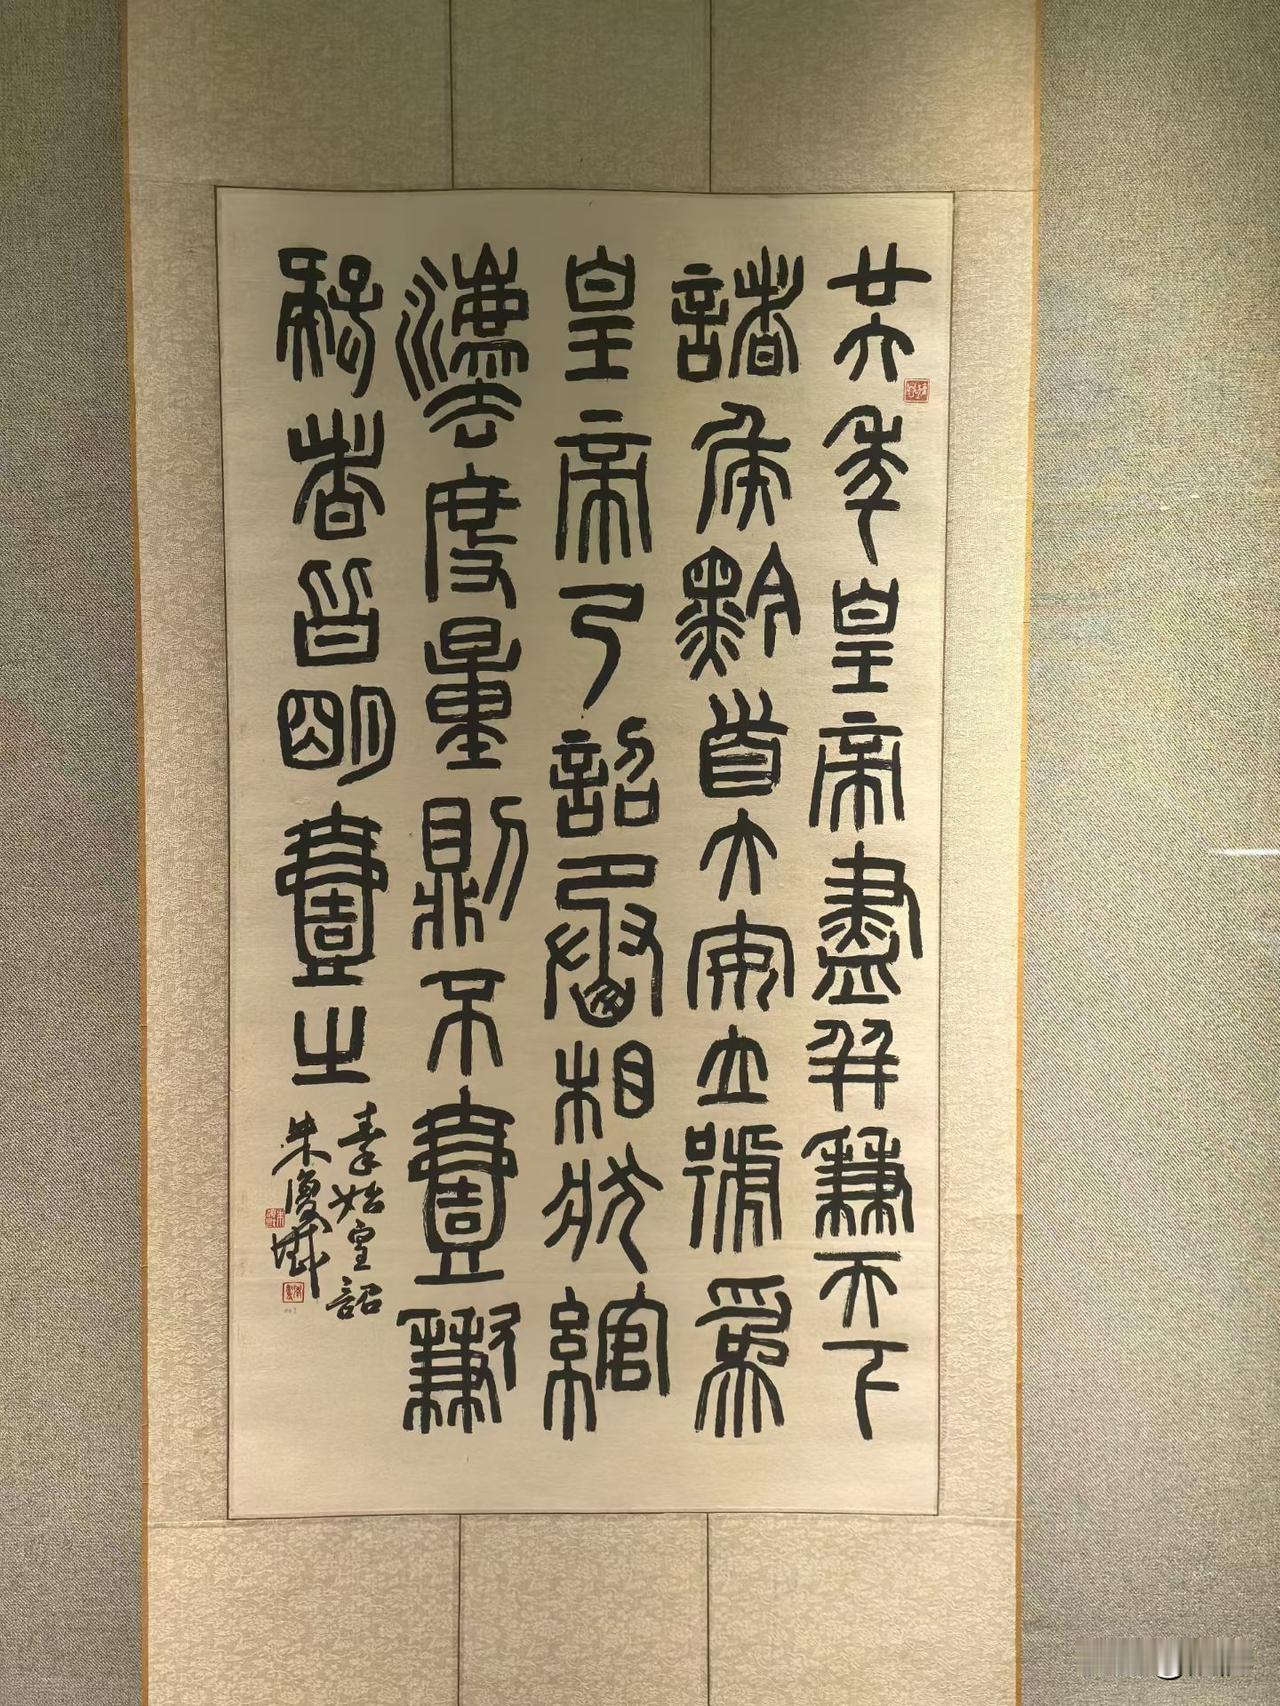 廿六年皇帝盡并兼天下
諸矦黔首大安立號爲
皇帝乃詔丞相狀綰
灋度量則不壹歉
疑者皆明壹之
秦始皇詔
朱